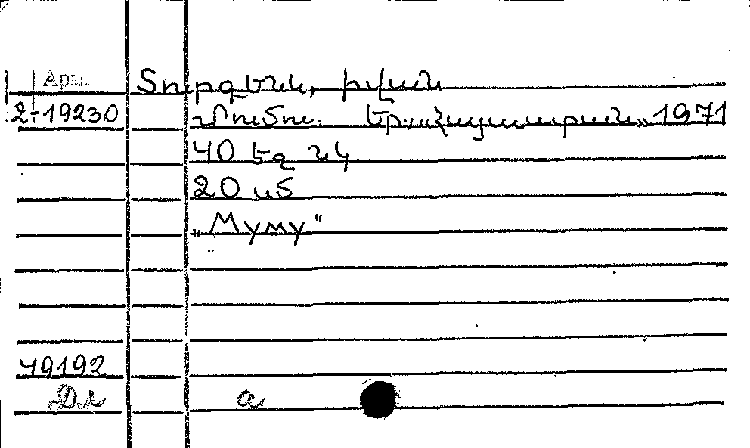 Арм. Տուրգենև, Իվան
2-19230 Մումու. Երևան, 1971
40 եջ նկ
20 սմ
„Муму"
49192
Дл а